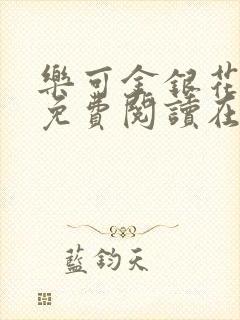 樂可金銀花
免費閱讀在
藍鈞天